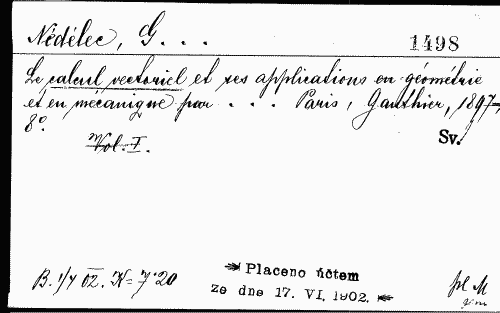 Nédélec, G...
1498
Le calcul vectoriel et ses applications en géométrie
et en mécanique par ... Paris, Gauthier, 1897,
8°.
Vol. I.
Sv.
B. 1/7 02. K= 7·20
Placeno účtem
ze dne 17. VI. 1902.